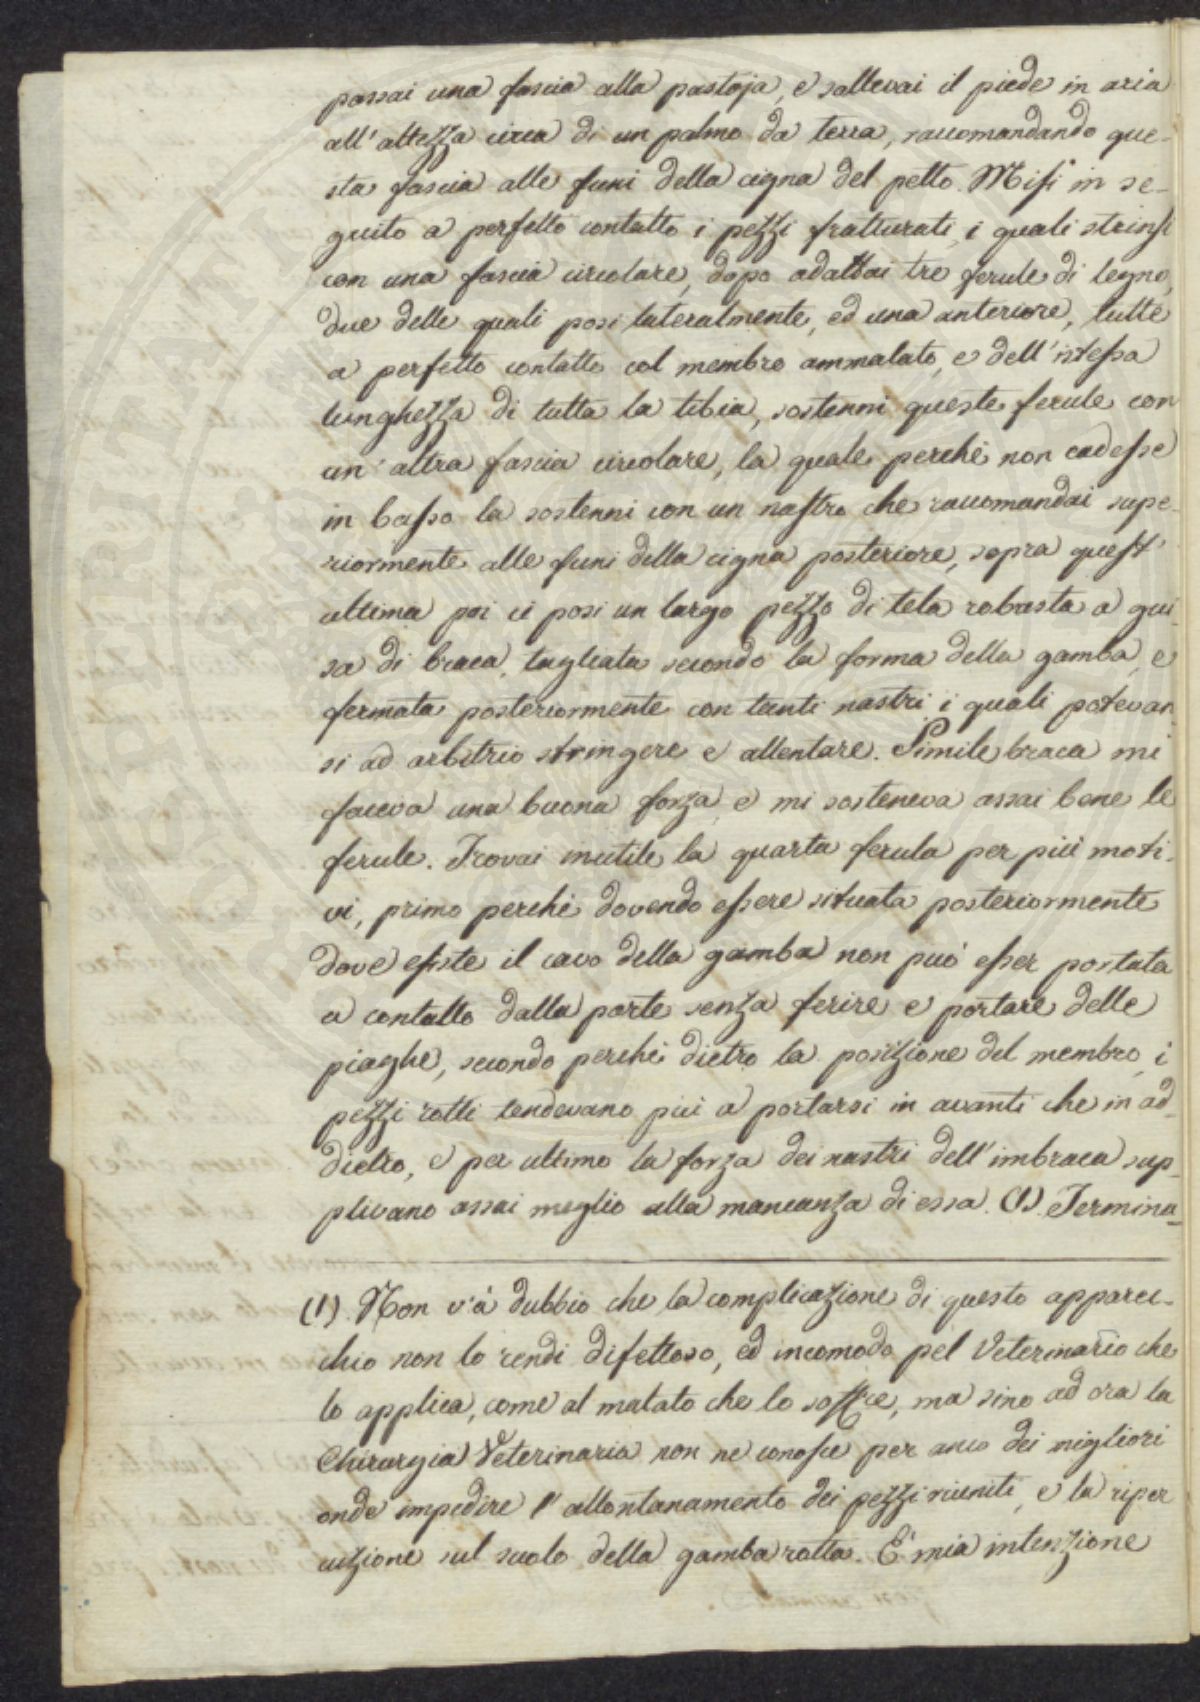 passai una fascia alla pastoja, e sollevai il piede in aria
all'altezza circa di un palmo da terra, raccomandando que-
sta fascia alle funi della cigna del petto. Misi in se-
guito a perfetto contatto i pezzi fratturati, i quali strinsi
con una fascia circolare, dopo adattai tre ferule di legno,
due delle quali posi lateralmente, ed una anteriore, tutte
a perfetto contatto col membro ammalato, e dell'istessa
lunghezza di tutta la tibia, sostenni queste ferule con
un'altra fascia circolare, la quale perchè non cadesse
in basso la sostenni con un nastro che raccomandai supe-
riormente alle funi della cigna posteriore, sopra quest'
ultima poi ci posi un largo pezzo di tela robusta a gui-
sa di braca, tagliata secondo la forma della gamba, e
fermata posteriormente con tanti nastri i quali potevan-
si ad arbitrio stringere e allentare. Simile braca mi
faceva una buona forza, e mi sosteneva assai bene le
ferule. Trovai inutile la quarta ferula per più moti-
vi, primo perchè dovendo essere situata posteriormente
dove esiste il cavo della gamba non può esser portata
a contatto dalla parte senza ferire e portare delle
piaghe, secondo perchè dietro la posizione del membro, i
pezzi rotti tendevano più a portarsi in avanti che in ad-
dietro, e per ultimo la forza dei nastri dell'imbraca sup-
plivano assai meglio alla mancanza di essa. (1). Termina-
(1) Non v'à dubbio che la complicazione di questo apparec-
chio non lo rendi difettoso, ed incomodo pel Veterinario che
lo applica, come al malato che lo soffre, ma sino ad ora la
Chirurgia Veterinaria non ne conosce per anco dei migliori
onde impedire l'allontanamento dei pezzi riuniti, e la riper
cuzione sul suolo della gamba rotta. E' mia intenzione